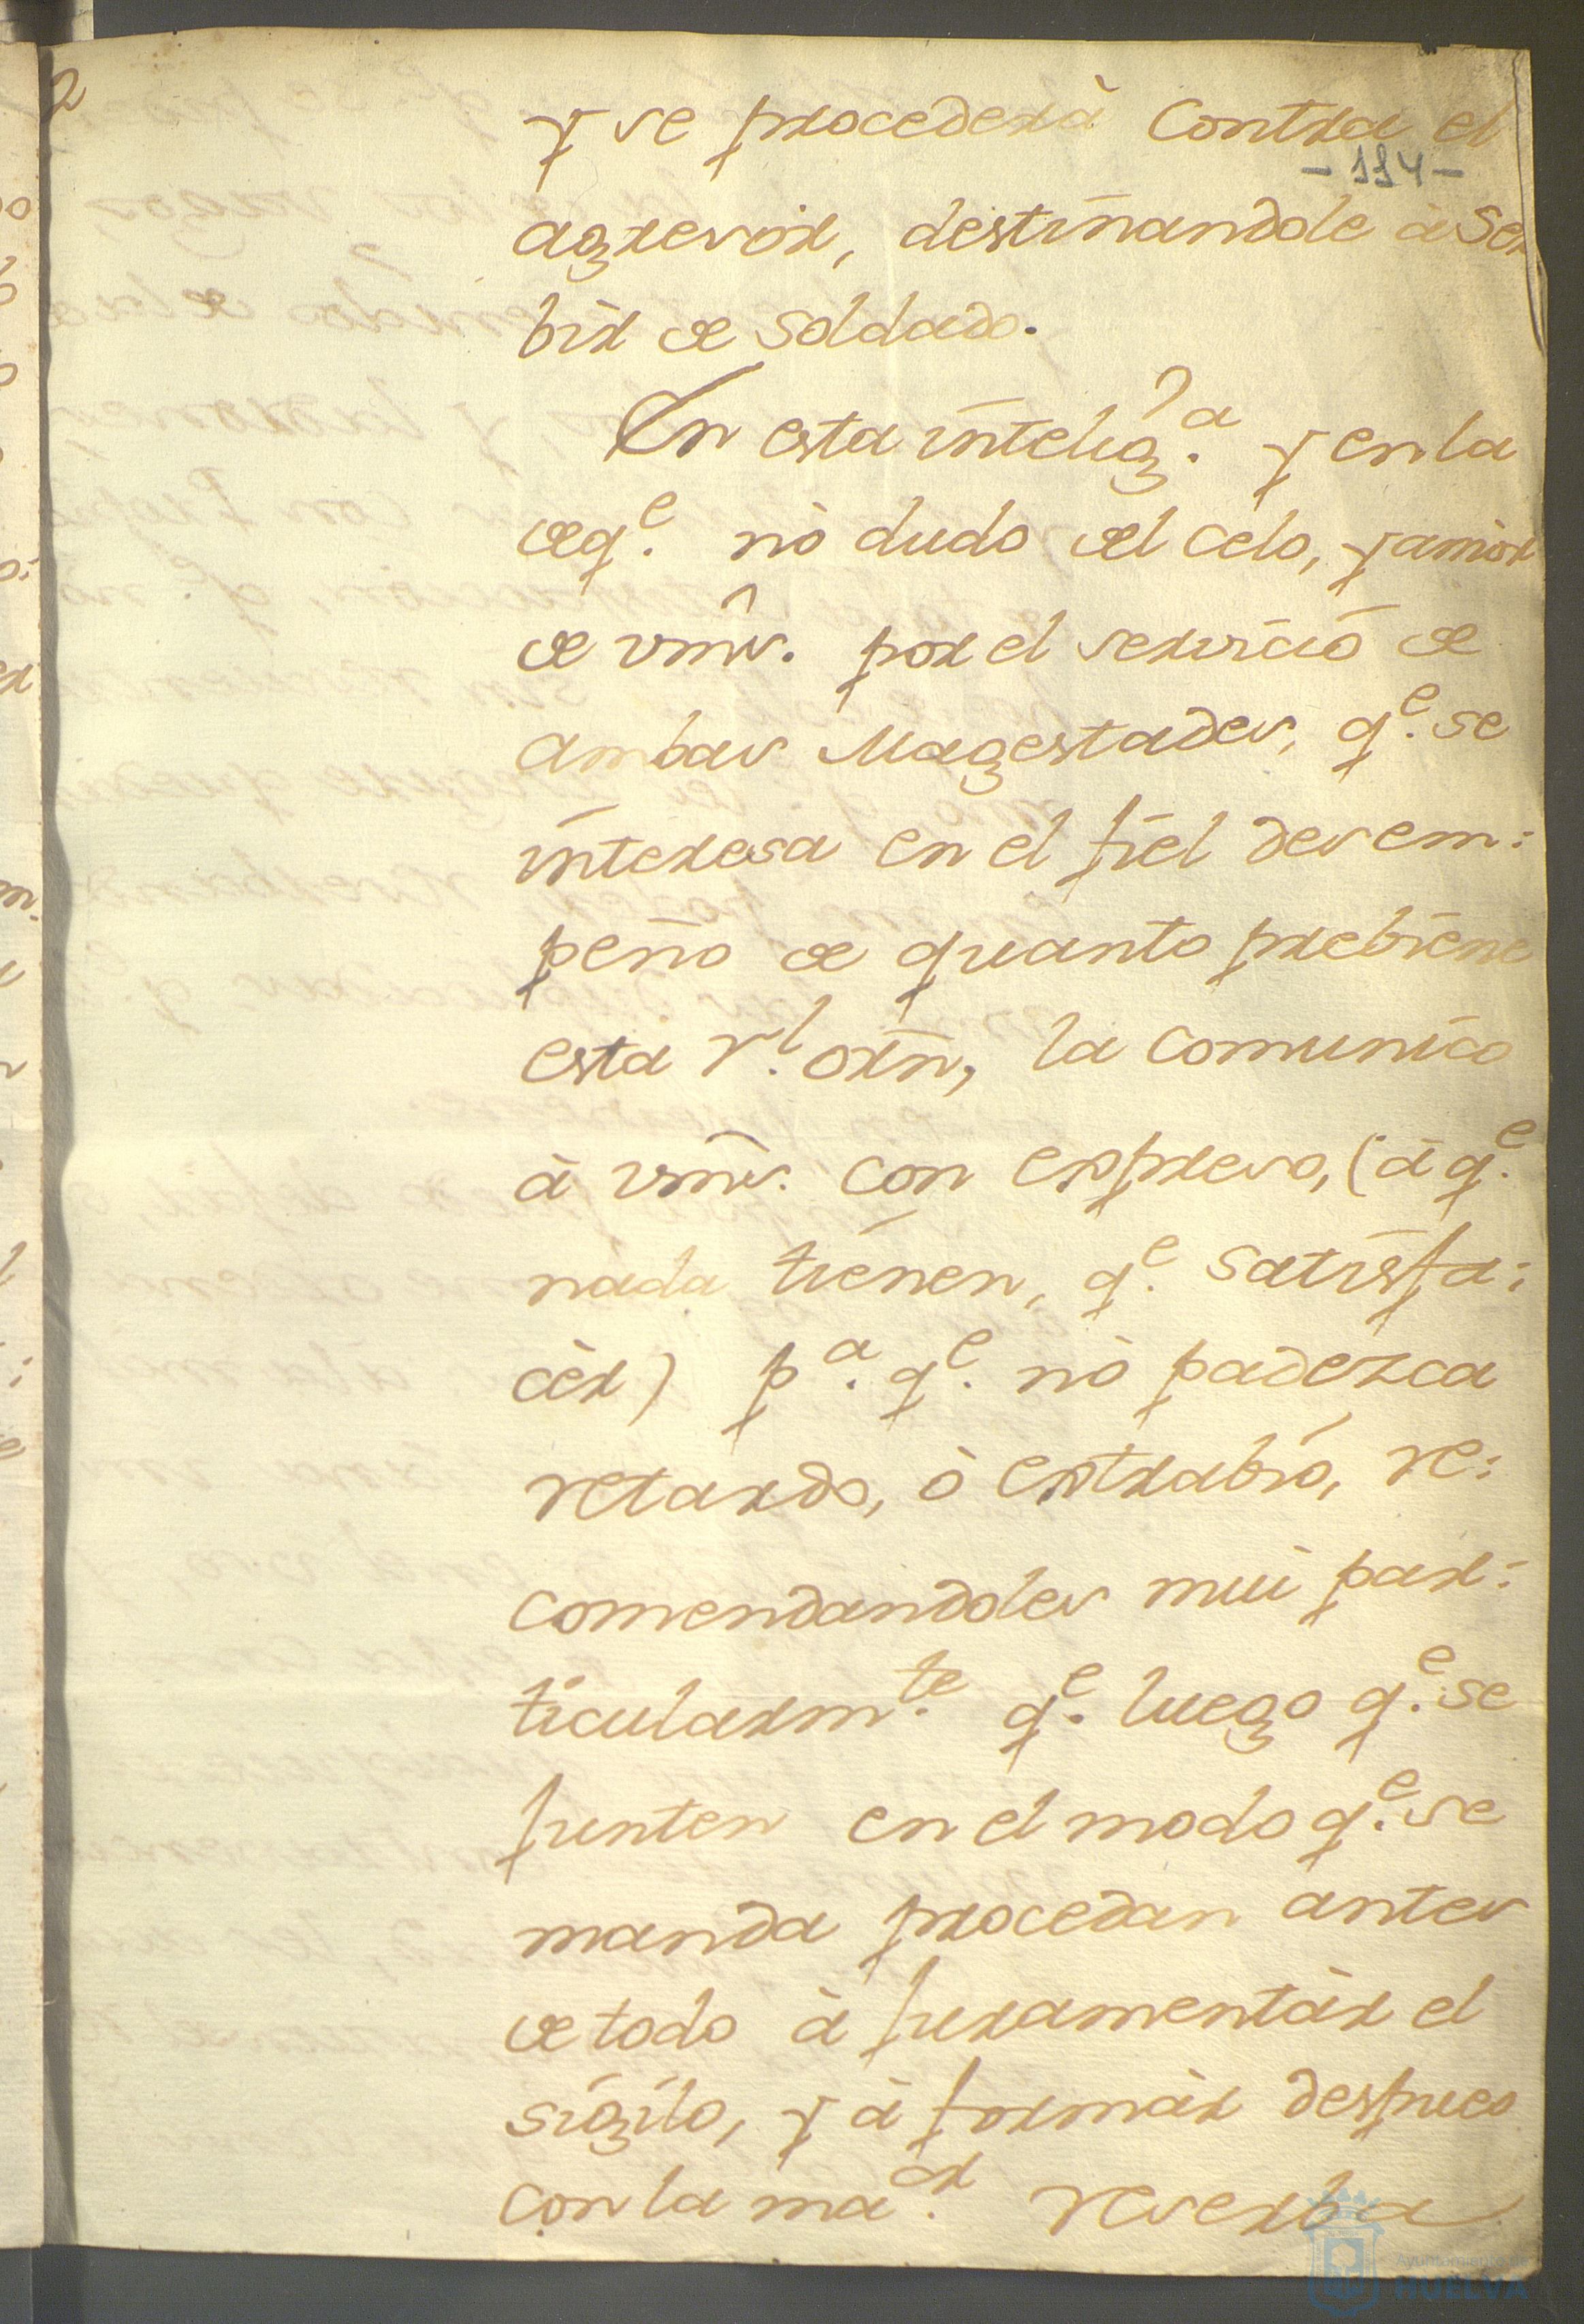 y se procederà Contra el
- 114 -
agresòr, destinandole à Ser
bir de Soldado.
En esta intelig.ª y en la
de q.e nò dudo del celo, y amòr
de vms. por el servicio de
ambas Magestades, q.e se
interesa en el fiel desem:
peño de quanto prebiene
esta r.l orñ, la comunico
à vms. con expreso, (à q.e
nada tienen, q.e satisfa:
cèr) p.a q.e nò padezca
retardo, ò extrabio, re:
comendandoles mui par:
ticularm.te q.e luego q.e se
junten en el modo q.e se
manda procedan antes
de todo à juramentàr el
sigilo, y à formàr despues
con la ma.or reserba
Ayuntamiento de
HUELVA